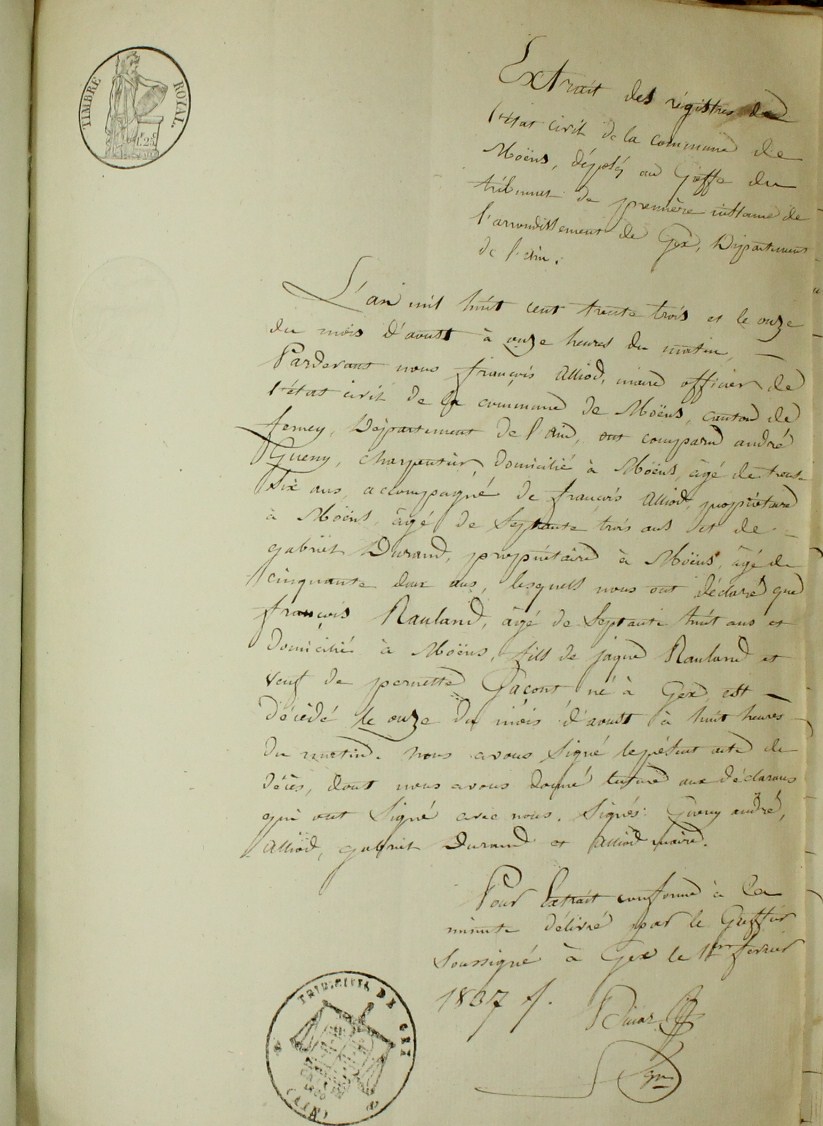 TIMBRE ROYAL
1f.25
Extrait des régistres de
l'état civil de la commune de
Moëns, déposés au Greffe du
tribunal de première instance de
l'arrondissement de Gex, Département
de l'ain.
L'an mil huit cent trente trois et le onze
du mois d'aoust à onze heures du matin,
Pardevant nous françois alliod, maire officier de
l'état civil de la commune de Moëns, canton de
ferney, Département de l'ain, ont comparu andré
Gueny, charpentier, domicilié à Moëns, âgé de trente
six ans, accompagné de françois alliod, propriétaire
à Moëns, âgé de Septante trois ans et de
gabriel Durand, propriétaire à Moëns, âgé de
cinquante deux ans, lesquels nous ont déclaré que
françois Rauland, âgé de Septante huit ans et
Domicilié à Moëns, fils de jaque Rauland et
veuf de pernette né à Gex, est
Décédé le onze du mois d'aoust à huit heures
du matin. nous avons Signé le présent acte de
décès, dont nous avons donné lecture aux déclarans
qui ont Signé avec nous. Signés: Gueny andré,
alliod, gabriel Durand et alliod maire.
Pour Extrait conforme à la
minute délivré par le Greffier
Soussigné à Gex le février
1837
TRIBUNAL DE GEX
(AIN)